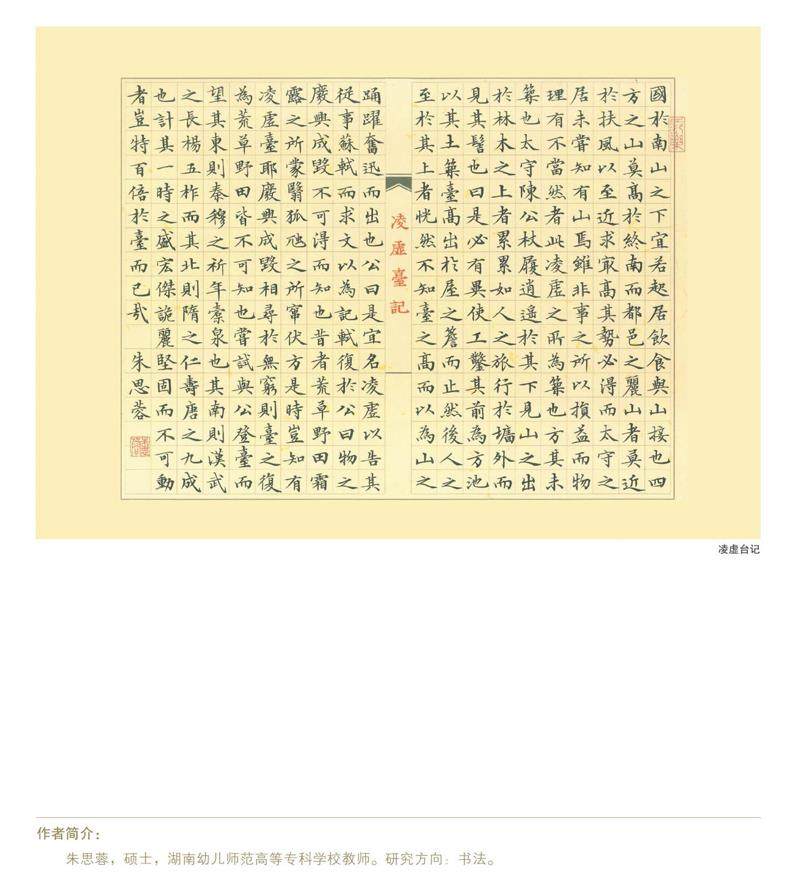 國於南山之下宜若起居飲食與山接也四
方之山莫高於終南而都邑之麗山者莫近
於扶風以至近求最高其勢必得而太守之
居未嘗知有山焉雖非事之所以損益而物
理有不當然者此凌虛之所為築也方其未
築也太守陳公杖履逍遙於其下見山之出
於林木之上者累累如人之旅行於墻外而
見其髻也曰是必有異使工鑿其前為方池
以其土築臺高出於屋之簷而止然後人之
至於其上者恍然不知臺之高而以為山之
凌虛臺記
踊躍奮迅而出也公曰是宜名凌虛以告其
從事蘇軾而求文以為記軾復於公曰物之
廢興成毀不可得而知也昔者荒草野田霜
露之所蒙翳狐虺之所竄伏方是時豈知有
凌虛臺耶廢興成毀相尋於無窮則臺之復
為荒草野田皆不可知也嘗試與公登臺而
望其東則秦穆之祈年橐泉也其南則漢武
之長楊五柞而其北則隋之仁壽唐之九成
也計其一時之盛宏傑詭麗堅固而不可動
者豈特百倍於臺而已哉 朱思蓉
凌虚台记
作者简介：
朱思蓉，硕士，湖南幼儿师范高等专科学校教师。研究方向：书法。